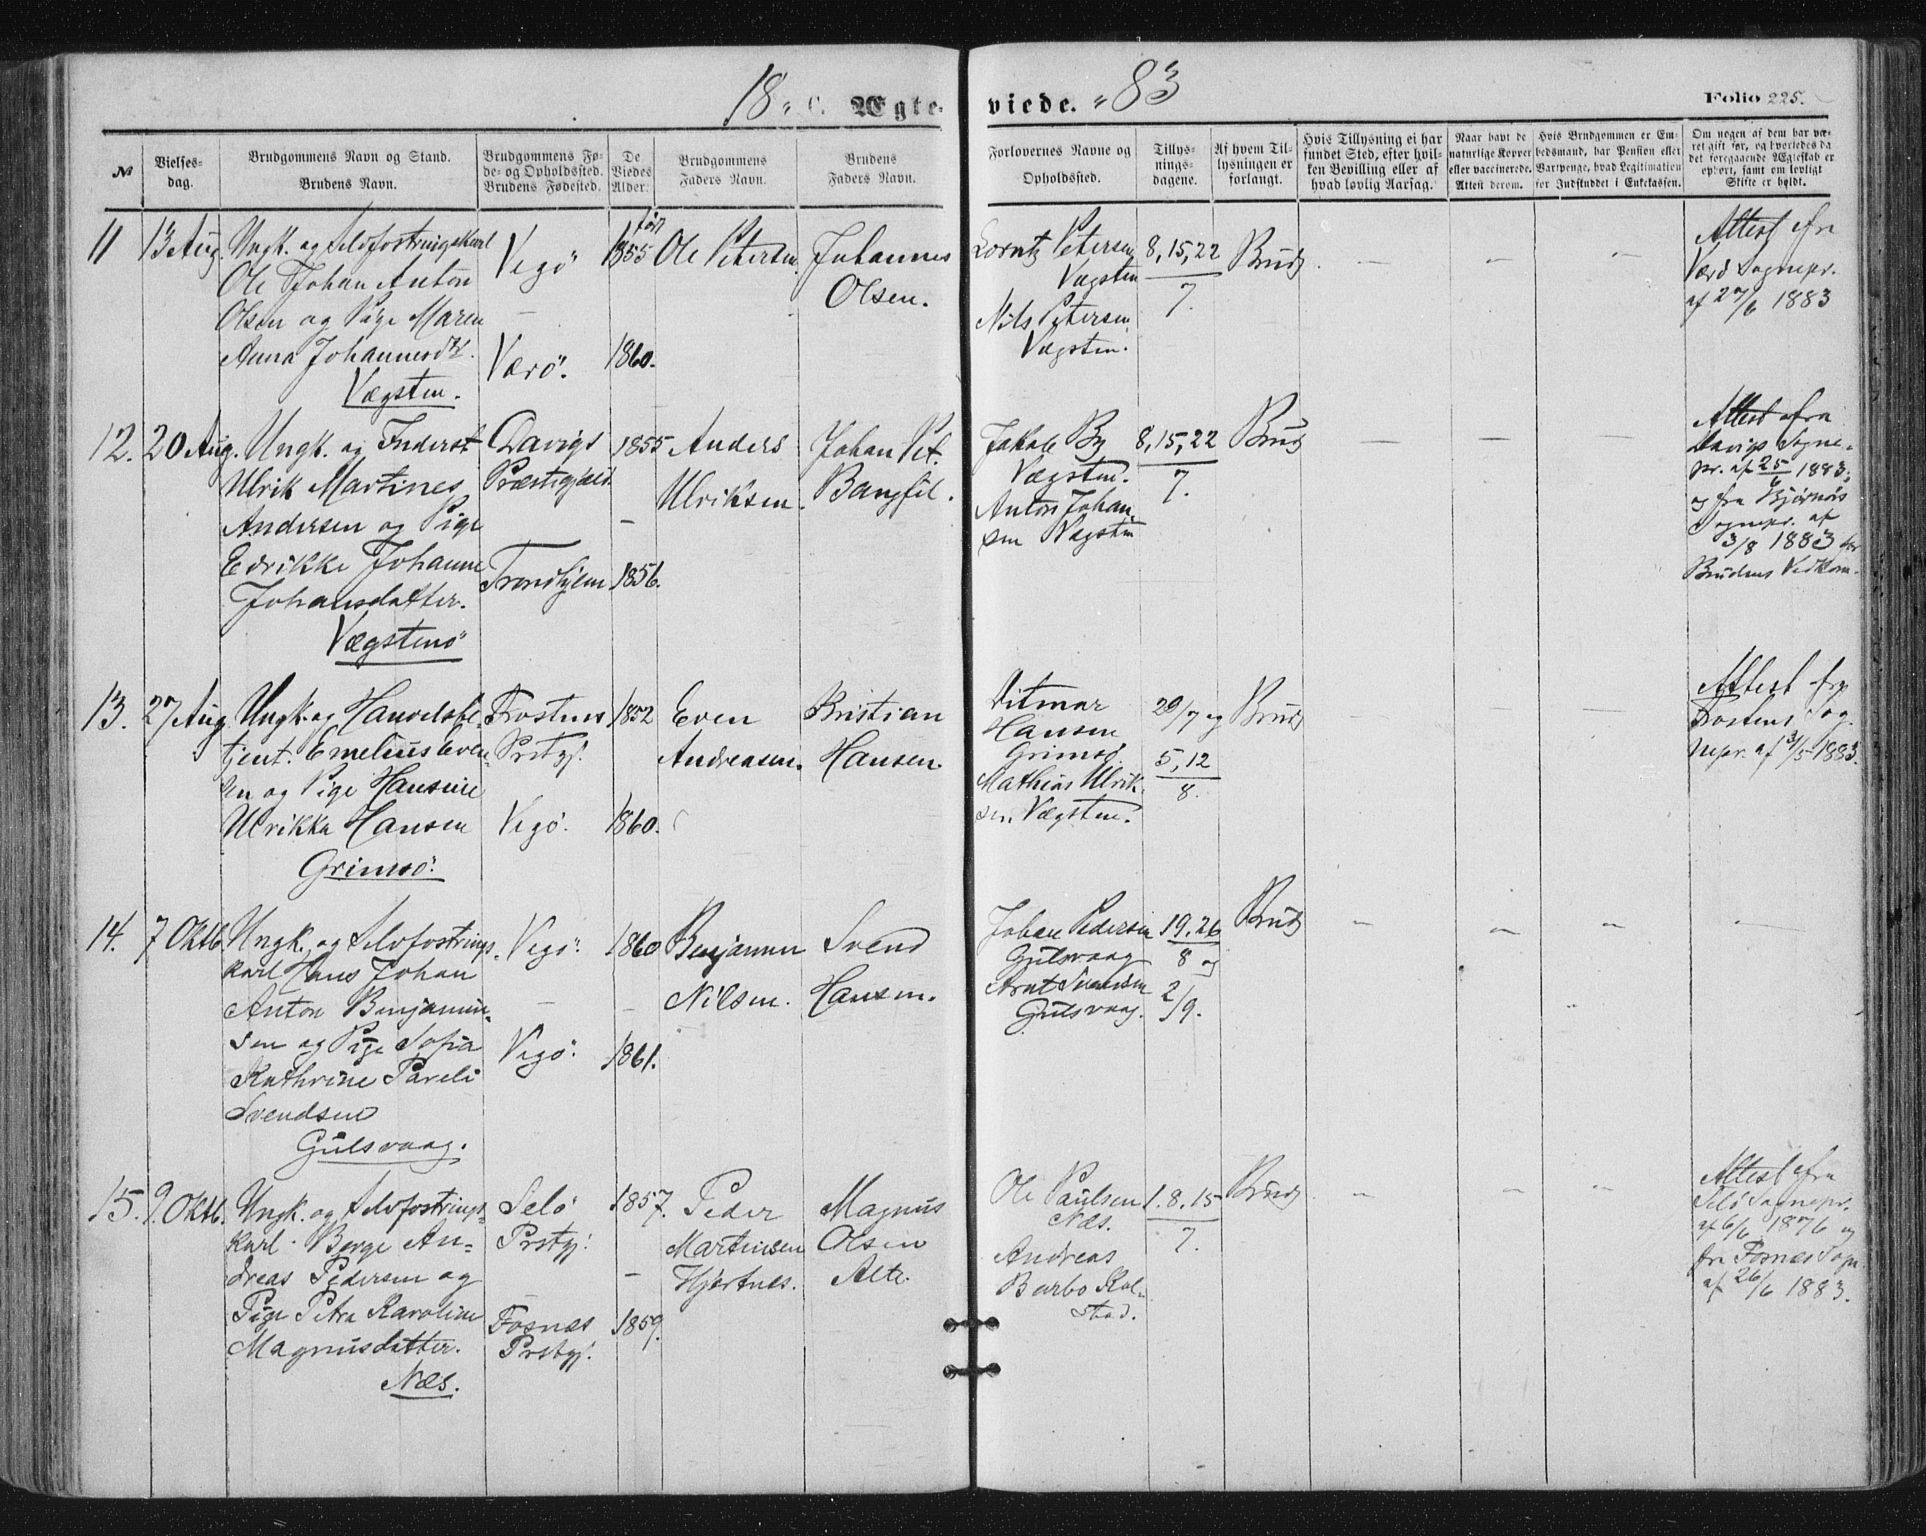 18 „ C. Ægte-
viede. „ 83
Folio 225.
№
Vielses-
dag.
Brudgommens Navn og Stand.
Brudens Navn.
Brudgommens Fø-
de- og Opholdssted.
Brudens Fødested.
De
Viedes
Alder.
Brudgommens
Faders Navn.
Brudens
Faders Navn.
Forlovernes Navne og
Opholdssted.
Tillys-
nings-
dagene.
Af hvem Til-
lysningen er
forlangt.
Hvis Tillysning ei har
fundet Sted, efter hvil-
ken Bevilling eller af
hvad lovlig Aarsag.
Naar havt de
naturlige Kopper
eller vaccinerede.
Attest derom.
Hvis Brudgommen er Em-
bedsmand, har Pension eller
Vartpenge, hvad Legitimation
for Indskuddet i Enkekassen.
Om nogen af dem har væ-
ret gift før, og hvorledes da
det foregaaende Ægteskab er
ophørt, samt om lovligt
Skifte er holdt.
11
13 Aug.
Ungk. og Selvfostringskarl
Ole Johan Anton
Olsen og Pige Maren
Anna Johannesdtr.
Vægsten.
Vegö
–
Værö.
født
1855
1860.
Ole Petersen.
Johannes
Olsen.
Lorntz Petersen
Vægsten
Nils Petersen
Vægsten.
8, 15, 22
7.
Brudg.
–
–
–
Attest fra
Værö Sognepr.
af 27/6 1883
12.
20 Aug.
Ungk. og Inderst
Ulrik Martines
Andersen og Pige
Edrikke Johanne
Johansdatter.
Vægstenö
Davigs
Præstegjæld
–
Trondhjem
1855
1856.
Anders
Ulriksen.
Johan Pet.
Bangfil.
Jakob By
Vægsten.
Anton Johan-
sen Vægsten
8, 15, 22
7.
Brudg
–
–
–
Attest fra
Davigs Sogne-
pr. af 25/6 1883;
og fra Bjørnörs
Sognepr. af
3/8 1883 for
Brudens Vedkom.
13.
27 Aug
Ungk. og Handelsbe-
tjent. Emelius Even-
sen og Pige Hansine
Ulrikka Hansen
Grimsö.
Frostens
Prstgj.
Vegö.
1852
1860.
Even
Andreasen.
Kristian
Hansen.
Ditmar
Hansen
Grimsö.
Mathias Ulrik-
sen Vægsten.
29/7 og
5, 12
8.
Brudg
–
–
–
Attest fra
Frostens Sog-
nepr. af 3/5 1883.
14.
7 Oktb.
Ungk. og Selvfostrings-
karl Hans Johan
Anton Benjamin-
sen og Pige Sofia
Kathrine Pareli
Svendsen
Gulsvaag.
Vegö.
–
Vegö.
1860
–
1861.
Benjamin
Nilsen.
Svend
Hansen.
Johan Pedersen
Gulsvaag
Arnt Svendsen
Gulsvaag.
19. 26
8 og
2/9.
Brudg
–
–
–
–
15.
9. Oktb.
Ungk. og Selvfostrings-
karl Berge An-
dreas Pedersen og
Pige Petra Karoline
Magnusdatter.
Næs.
Selö
Prstgj.
–
Fosnæs
Prstgj.
1857.
1859.
Peder
Martinsen
Hjertnes.
Magnus
Olsen
Alte.
Ole Paulsen
Næs.
Andreas
Barbo Rol-
stad.
1. 8. 15
7.
Brudg
–
–
–
Attest fra
Selö Sognepr.
af 6/6 1876 og
fra Fosnæs Sogn
af 26/6 1883.